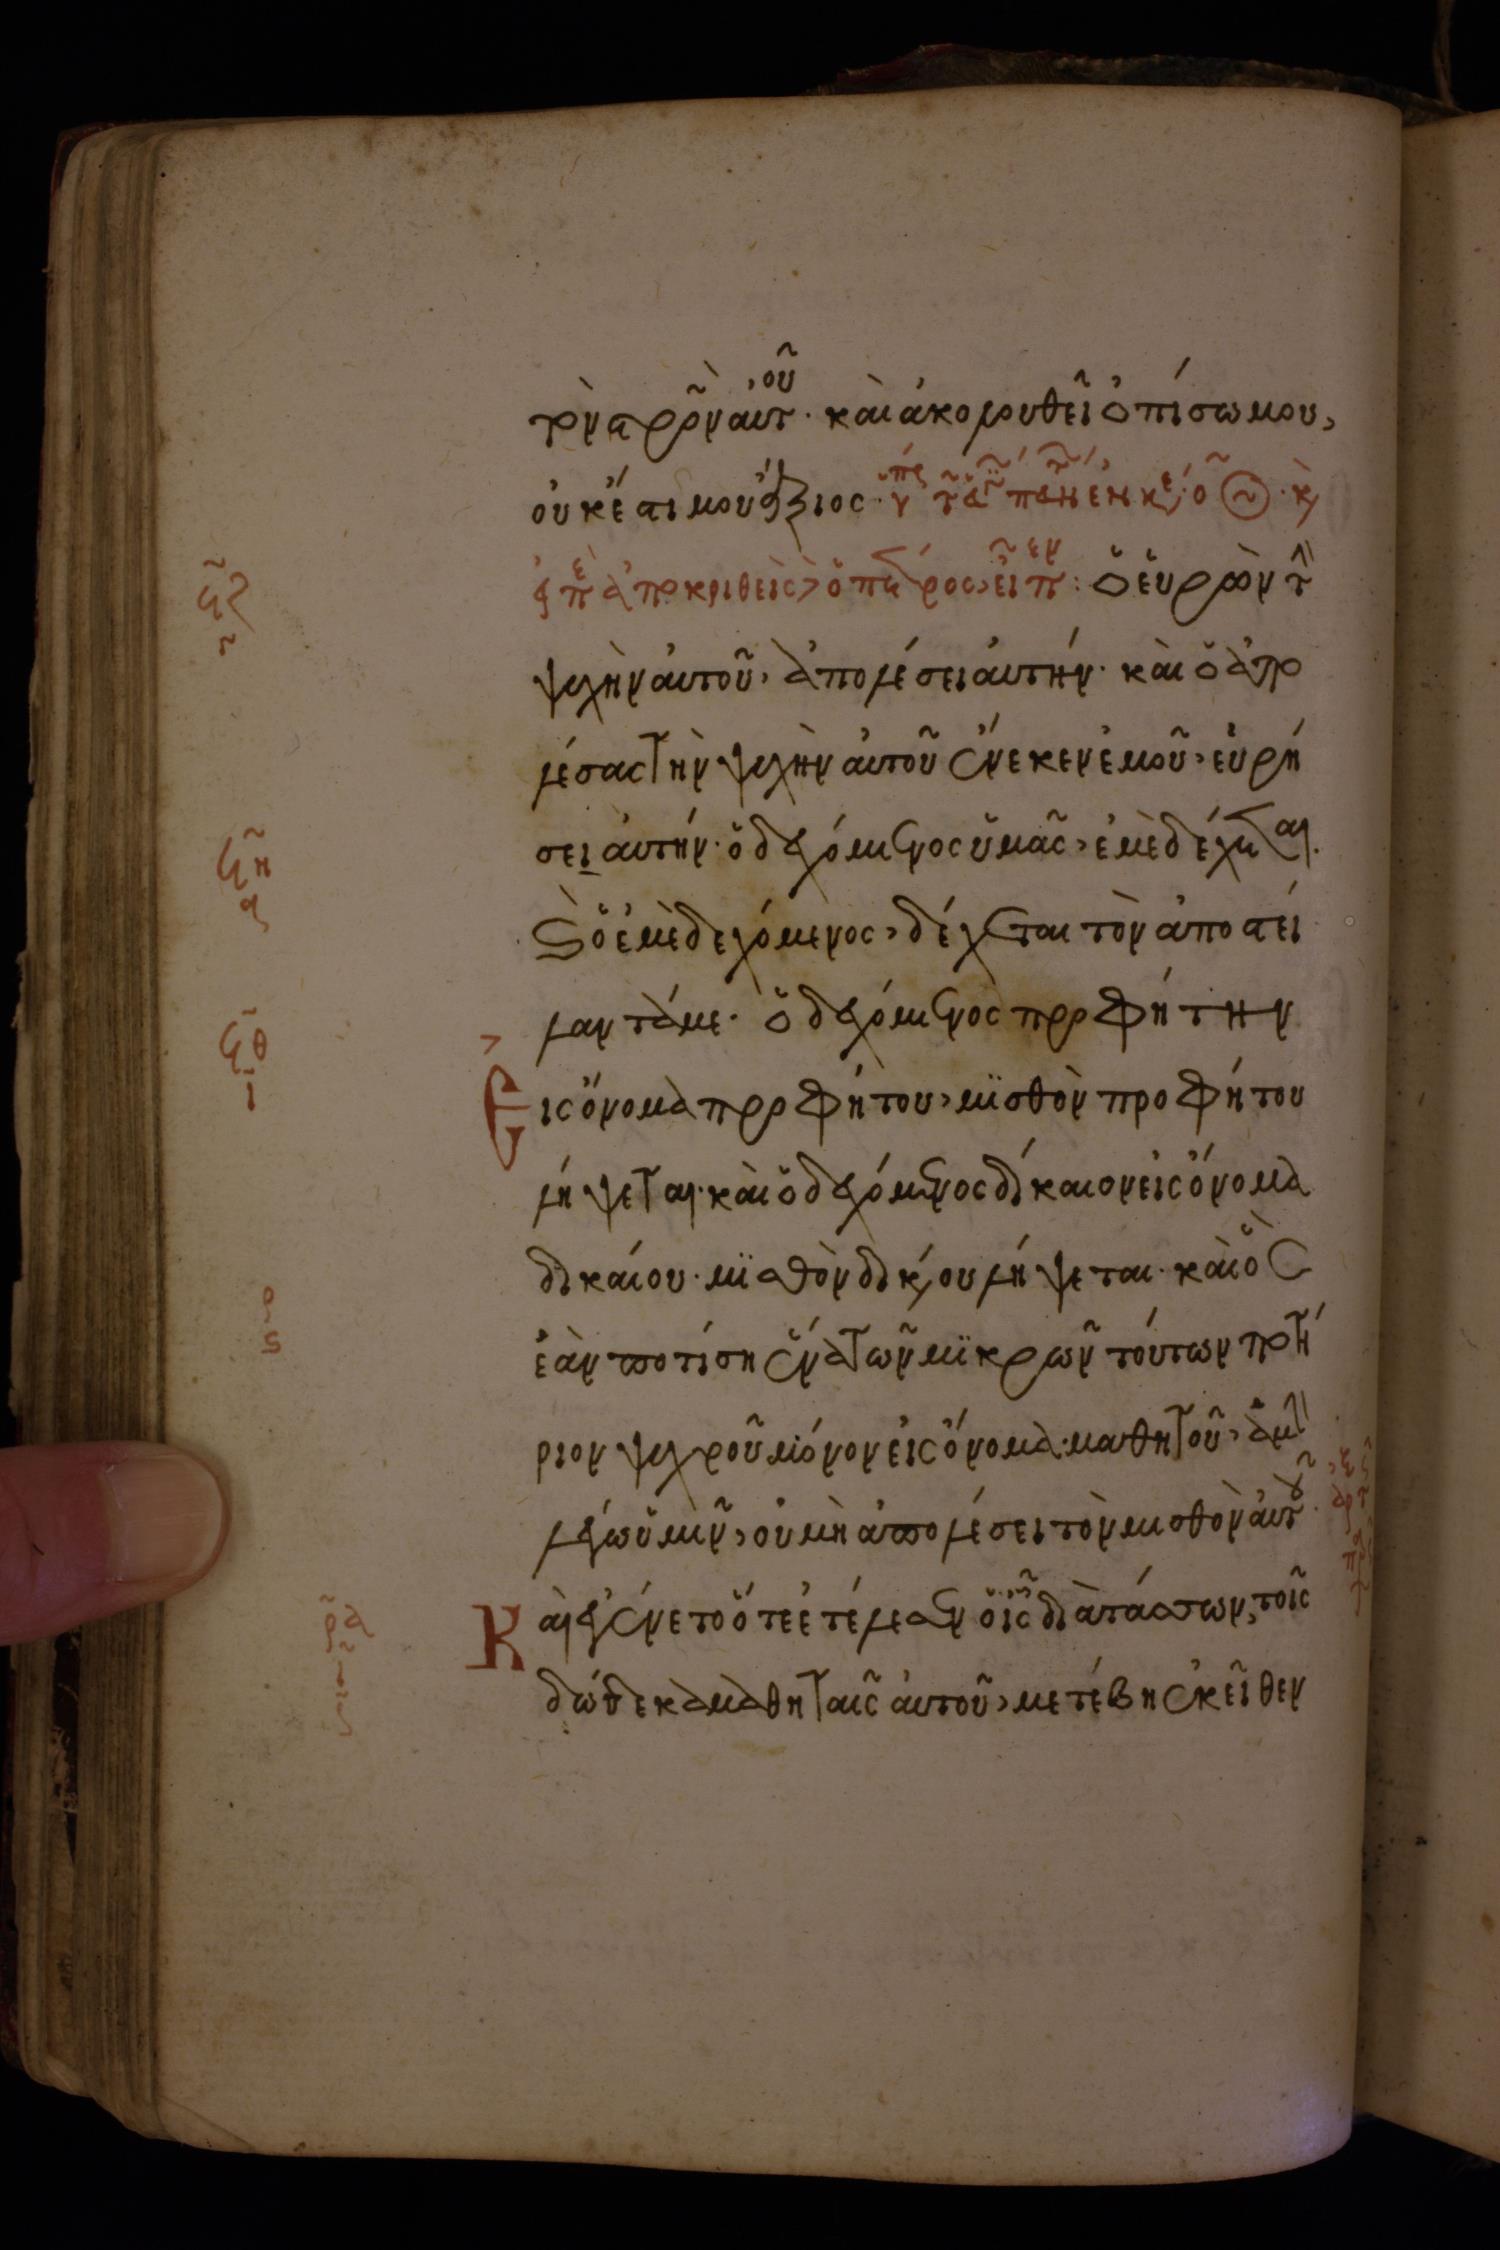 τὸν στρον αυτοῦ. και ἀκολουθεῖ ὀπίσω μου,
οὐκ ἔστι μου ἄξιος.
ἀποκριθεὶς ὁ πέτρος, εἶπεν: ὁ εὑρὼν τ
ψυχὴν αυτοῦ, ἀπολέσει αυτήν. και ὁ ἀπο
λέσας τὴν ψυχὴν αυτοῦ ἕνεκεν ἐμοῦ, εὑρή
σει αυτήν. ὁ δεχόμενος ὑμᾶς, ἐμὲ δέχεται.
Ϛ ὁ ἐμὲ δεχόμενος, δέχεται τὸν ἀποστεί
λαντά με. ὁ δεχόμενος προφήτην
Εις ὄνομα προφήτου, μϊσθὸν προφήτου
λήψεται. καὶ ὁ δεχόμενος δίκαιον εἰς ὄνομα
δικαίου. μϊσθὸν δικαίου λήψεται. καὶ ὃς
ἐὰν ποτίση ἕνα τῶν μϊκρῶν τούτων ποτή
ριον ψυχροῦ μόνον εἰς ὄνομα μαθητοῦ, ἀμὴ
λέγω ὑμῖν, οὐ μὴ ἀπολέσει τὸν μισθὸν αὐτοῦ.
Καὶ ἐγένετο ὅτε ἐτέλεσεν ὁ ις διατάσσων, τοῖς
δώδεκα μαθηταῖς αὐτοῦ, μετέβη ἐκεῖθεν